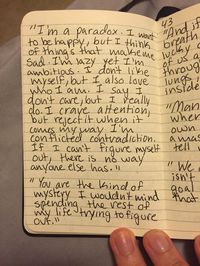 "I'm a paradox. I want
to be happy, but I think
of things that make me
sad. I'm lazy yet I'm
ambitious. I don't like
myself, but I also love
who I am. I say I
don't care, but I really
do. I crave attention,
but reject it when it
comes my way. I'm
conflicted contradiction.
If I can't figure myself
out, there is no way
anyone else has."
"You are the kind of
mystery I wouldn't mind
spending the rest of
my life trying to figure
out."
43
"And if
breath
lucky
of
throug
lungs
inside
"Man
where
own
a was
tell
"We
isn't
goal
that